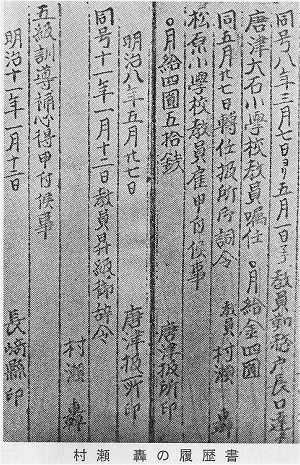 同号八年三月七日ヨリ五月一日マテ教員勤務戸長口達
唐津大石小學校教員嘱任 〇月給金四圓
同五月廿七日轉任扱所御詞令 教員 村瀬 轟
松原小學校教員雇申付候事
〇月給四圓五拾銭 唐津扱所印
明治八年五月廿七日 唐津扱所印
同号十一年一月十二日教員昇級御辞令
村瀬 轟
五級訓導補心得申付候事
明治十一年一月十二日 長崎縣印
村瀬 轟の履歴書